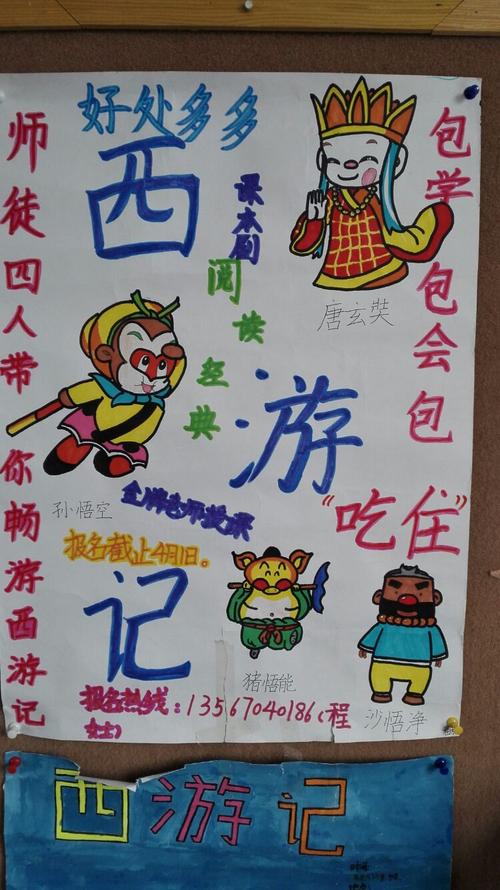 好处多多
西游记
师徒四人带你畅游西游记
包学包会包“吃住”
课本剧
阅读经典
唐玄奘
孙悟空
金牌老师授课
报名截止4月1日。
猪悟能
沙悟净
报名热线：13567040186（程
女士）
西游记
时间：